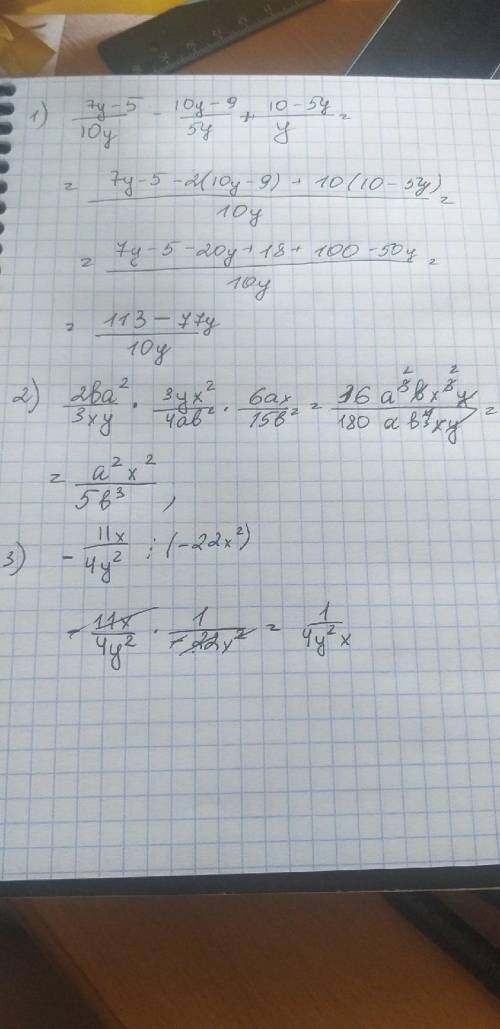 1) (7y-5)/(10y) - (10y-9)/(5y) + (10-5y)/y =
= (7y-5-2(10y-9)+10(10-5y))/(10y) =
= (7y-5-20y+18+100-50y)/(10y) =
= (113-77y)/(10y)
2) (2ва²)/(3xy) · (3yx²)/(4aв²) · (6ax)/(15в²) = (36a³вx³y)/(180aв⁴xy) =
= (a²x²)/(5в³),
3) -(11x)/(4y²) : (-22x²)
-(11x)/(4y²) · 1/(-22x²) = 1/(4y²x)